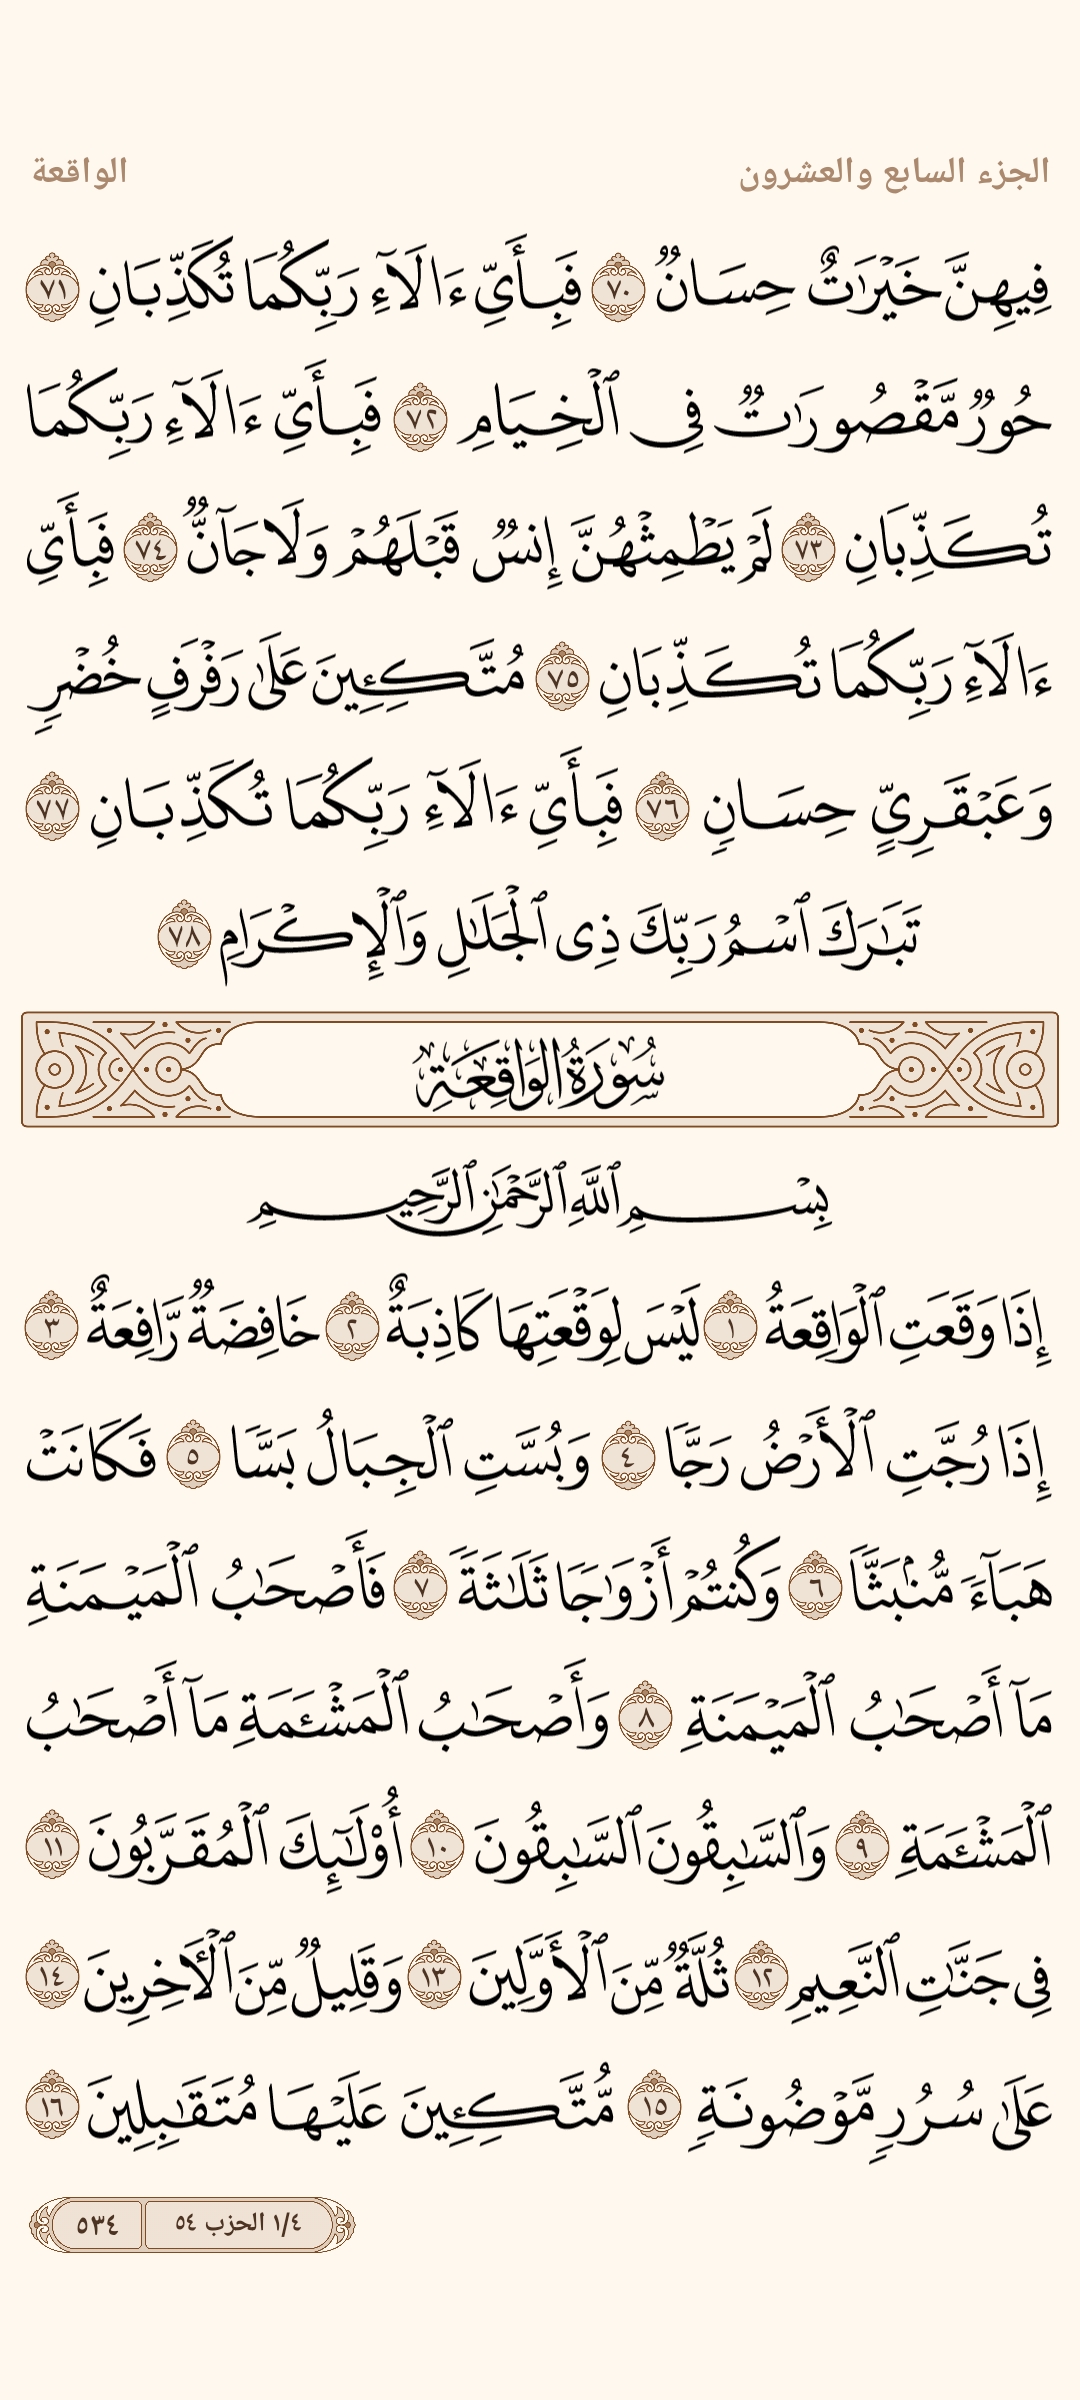 الجزء السابع والعشرون
الواقعة
فِيهِنَّ خَيۡرَٰتٌ حِسَانٞ ٧٠ فَبِأَيِّ ءَالَآءِ رَبِّكُمَا تُكَذِّبَانِ ٧١
حُورٞ مَّقۡصُورَٰتٞ فِي ٱلۡخِيَامِ ٧٢ فَبِأَيِّ ءَالَآءِ رَبِّكُمَا
تُكَذِّبَانِ ٧٣ لَمۡ يَطۡمِثۡهُنَّ إِنسٞ قَبۡلَهُمۡ وَلَا جَآنّٞ ٧٤ فَبِأَيِّ
ءَالَآءِ رَبِّكُمَا تُكَذِّبَانِ ٧٥ مُتَّكِـِٔينَ عَلَىٰ رَفۡرَفٍ خُضۡرٖ
وَعَبۡقَرِيٍّ حِسَانٖ ٧٦ فَبِأَيِّ ءَالَآءِ رَبِّكُمَا تُكَذِّبَانِ ٧٧
تَبَٰرَكَ ٱسۡمُ رَبِّكَ ذِي ٱلۡجَلَٰلِ وَٱلۡإِكۡرَامِ ٧٨
سُورَةُ الوَاقِعَةِ
بِسۡمِ ٱللَّهِ ٱلرَّحۡمَٰنِ ٱلرَّحِيمِ
إِذَا وَقَعَتِ ٱلۡوَاقِعَةُ ١ لَيۡسَ لِوَقۡعَتِهَا كَاذِبَةٌ ٢ خَافِضَةٞ رَّافِعَةٌ ٣
إِذَا رُجَّتِ ٱلۡأَرۡضُ رَجّٗا ٤ وَبُسَّتِ ٱلۡجِبَالُ بَسّٗا ٥ فَكَانَتۡ
هَبَآءٗ مُّنۢبَثّٗا ٦ وَكُنتُمۡ أَزۡوَٰجٗا ثَلَٰثَةٗ ٧ فَأَصۡحَٰبُ ٱلۡمَيۡمَنَةِ
مَآ أَصۡحَٰبُ ٱلۡمَيۡمَنَةِ ٨ وَأَصۡحَٰبُ ٱلۡمَشۡـَٔمَةِ مَآ أَصۡحَٰبُ
ٱلۡمَشۡـَٔمَةِ ٩ وَٱلسَّٰبِقُونَ ٱلسَّٰبِقُونَ ١٠ أُوْلَٰٓئِكَ ٱلۡمُقَرَّبُونَ ١١
فِي جَنَّٰتِ ٱلنَّعِيمِ ١٢ ثُلَّةٞ مِّنَ ٱلۡأَوَّلِينَ ١٣ وَقَلِيلٞ مِّنَ ٱلۡأٓخِرِينَ ١٤
عَلَىٰ سُرُرٖ مَّوۡضُونَةٖ ١٥ مُّتَّكِـِٔينَ عَلَيۡهَا مُتَقَٰبِلِينَ ١٦
١/٤ الحزب ٥٤
٥٣٤